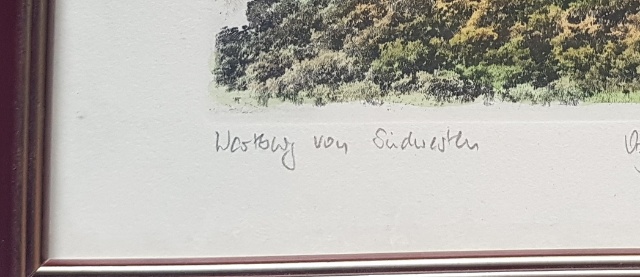 Wartburg von Südwesten